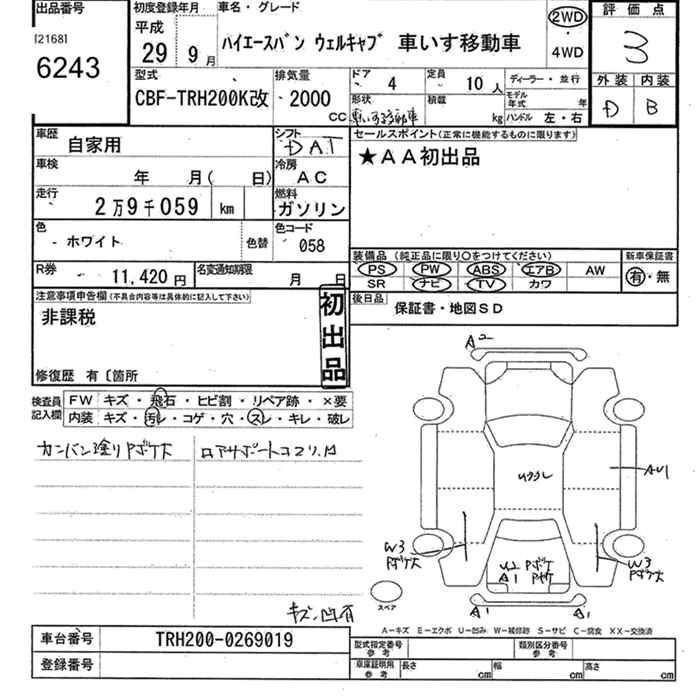 出品番号
[2168]
6243
初度登録年月
平成
29 9 月
車名・グレード
ハイエースバン ウェルキャブ 車いす移動車
2WD
4WD
評価点
3
外装 内装
D B
型式
CBF-TRH200K改
排気量
2000 CC
ドア 4
定員 10 人
ディーラー・並行
形状
車いす移動車
積載 kg
モデル年式 年
ハンドル 左・右
車歴 自家用
シフト DAT
セールスポイント(正常に機能するものに限ります)
★AA初出品
車検 年 月( 日)
冷房 AC
走行 2万9千059 km
燃料 ガソリン
色 ホワイト 色替
色コード 058
装備品 (純正品に限り○をつけてください)
新車保証書
PS PW ABS エアB AW
SR ナビ TV カワ
有・無
R券 11,420 円
名変通知期限 月 日
後日品 保証書・地図SD
注意事項申告欄(不具合内容等は具体的に記入して下さい)
非課税
初出品
修復歴 有〔箇所
検査員記入欄
FW キズ・飛石・ヒビ割・リペア跡・×要
内装 キズ・汚レ・コゲ・穴・スレ・キレ・破レ
カンバン塗りPボケ大 ロアサポートコマリ、凹
キズ、凹有
A2
AU1
W3
Pボケ大
W3
Pボケ大
U2 Pボケ
A1
A1
A1
スペア
A-キズ E-エクボ U-凹み W-補修跡 S-サビ C-腐食 XX-交換済
車台番号 TRH200-0269019
登録番号
型式指定番号 参考
類別区分番号 参考
車庫証明用 参考
長さ cm 幅 cm 高さ cm